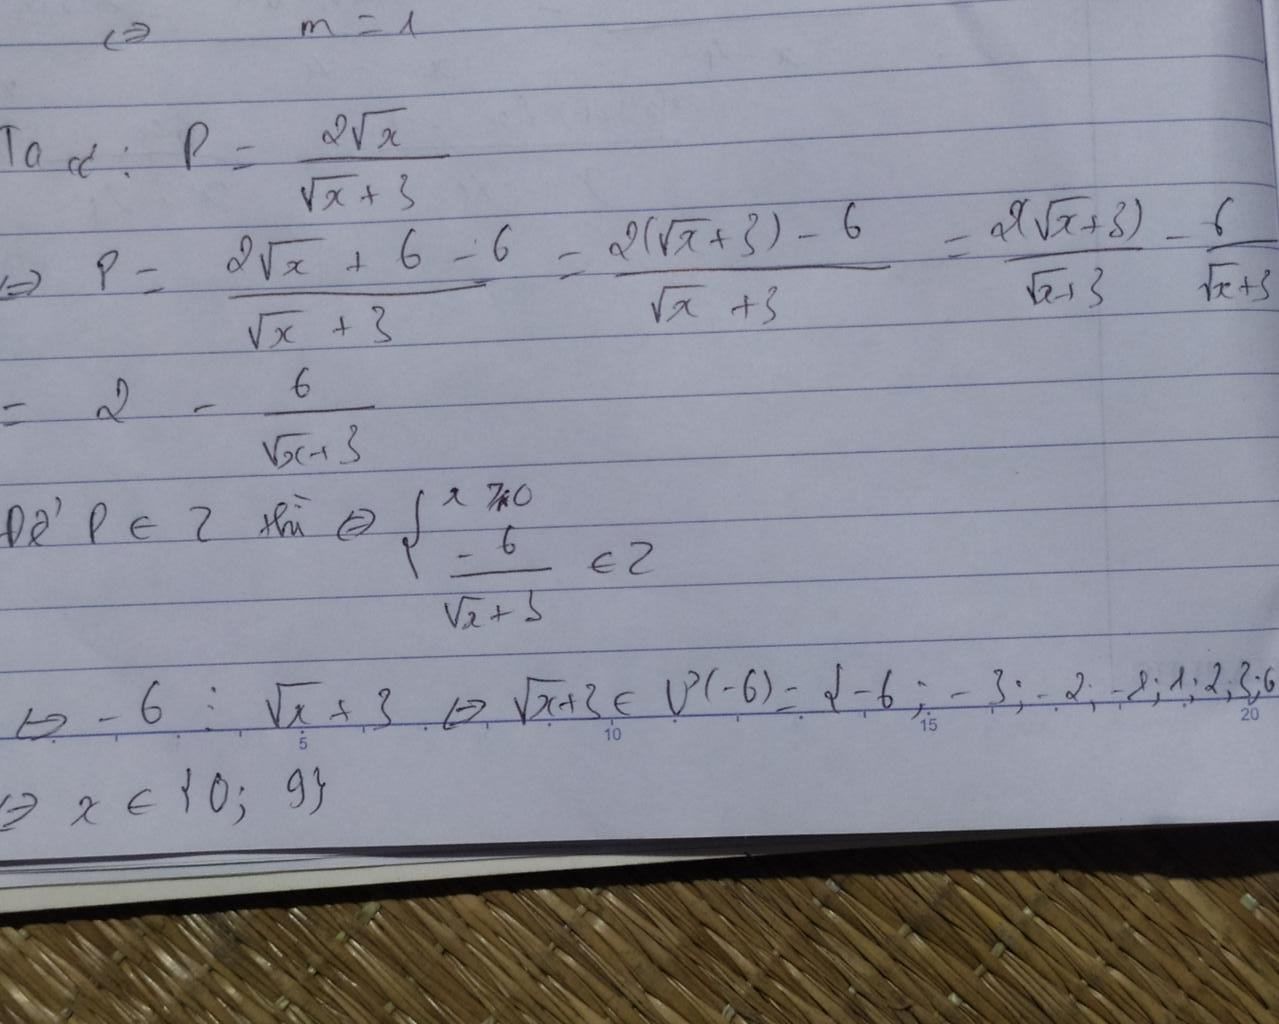 ⇔ m = 1
Ta có: P = 2√x / (√x + 3)
⇔ P = (2√x + 6 - 6) / (√x + 3) = (2(√x + 3) - 6) / (√x + 3) = 2(√x + 3) / (√x + 3) - 6 / (√x + 3)
= 2 - 6 / (√x + 3)
Để P ∈ Z thì ⇔ { x ≥ 0
-6 / (√x + 3) ∈ Z
⇔ -6 ⋮ √x + 3 ⇔ √x + 3 ∈ Ư(-6) = {-6; -3; -2; -1; 1; 2; 3; 6
5 10 15 20
⇔ x ∈ {0; 9}